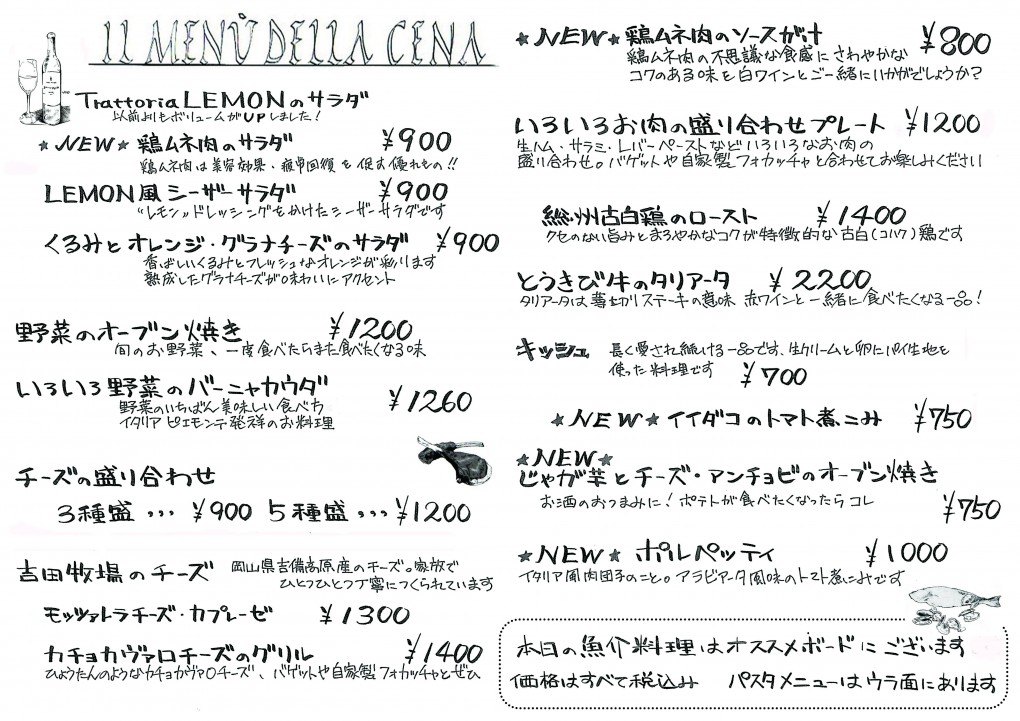 IL MENÙ DELLA CENA
Trattoria LEMONのサラダ
以前よりもボリュームがUPしました!
★NEW★ 鶏ムネ肉のサラダ ¥900
鶏ムネ肉は美容効果、疲労回復を促す優れもの!!
LEMON風シーザーサラダ ¥900
"レモン"ドレッシングをかけたシーザーサラダです
くるみとオレンジ・グラナチーズのサラダ ¥900
香ばしいくるみとフレッシュなオレンジが彩ります
熟成したグラナチーズが味わいにアクセント
野菜のオーブン焼き ¥1200
旬のお野菜、一度食べたらまた食べたくなる味
いろいろ野菜のバーニャカウダ ¥1260
野菜のいちばん美味しい食べ方
イタリア ピエモンテ発祥のお料理
チーズの盛り合わせ
3種盛 ... ¥900 5種盛 ... ¥1200
吉田牧場のチーズ 岡山県吉備高原産のチーズ。家族で
ひとつひとつ丁寧につくられています
モッツァレラチーズ・カプレーゼ ¥1300
カチョカヴァロチーズのグリル ¥1400
ひょうたんのようなカチョカヴァロチーズ、バゲットや自家製フォカッチャとぜひ
★NEW★ 鶏ムネ肉のソースがけ ¥800
鶏ムネ肉の不思議な食感にさわやかな
コクのある味を白ワインとご一緒にいかがでしょうか?
いろいろお肉の盛り合わせプレート ¥1200
生ハム、サラミ、レバーペーストなどいろいろなお肉の
盛り合わせ。バゲットや自家製フォカッチャと合わせてお楽しみください
総州古白鶏のロースト ¥1400
クセのない旨みとまろやかなコクが特徴的な古白(コハク)鶏です
とうきび牛のタリアータ ¥2200
タリアータは薄切りステーキの意味 赤ワインと一緒に食べたくなる一品!
キッシュ 長く愛され続ける一品です、生クリームと卵にパイ生地を
使った料理です ¥700
★NEW★ イイダコのトマト煮こみ ¥750
★NEW★
じゃが芋とチーズ・アンチョビのオーブン焼き
お酒のおつまみに!ポテトが食べたくなったらコレ ¥750
★NEW★ ポルペッティ ¥1000
イタリア風肉団子のこと。アラビアータ風味のトマト煮こみです
本日の魚介料理はオススメボードにございます
価格はすべて税込み パスタメニューはウラ面にあります